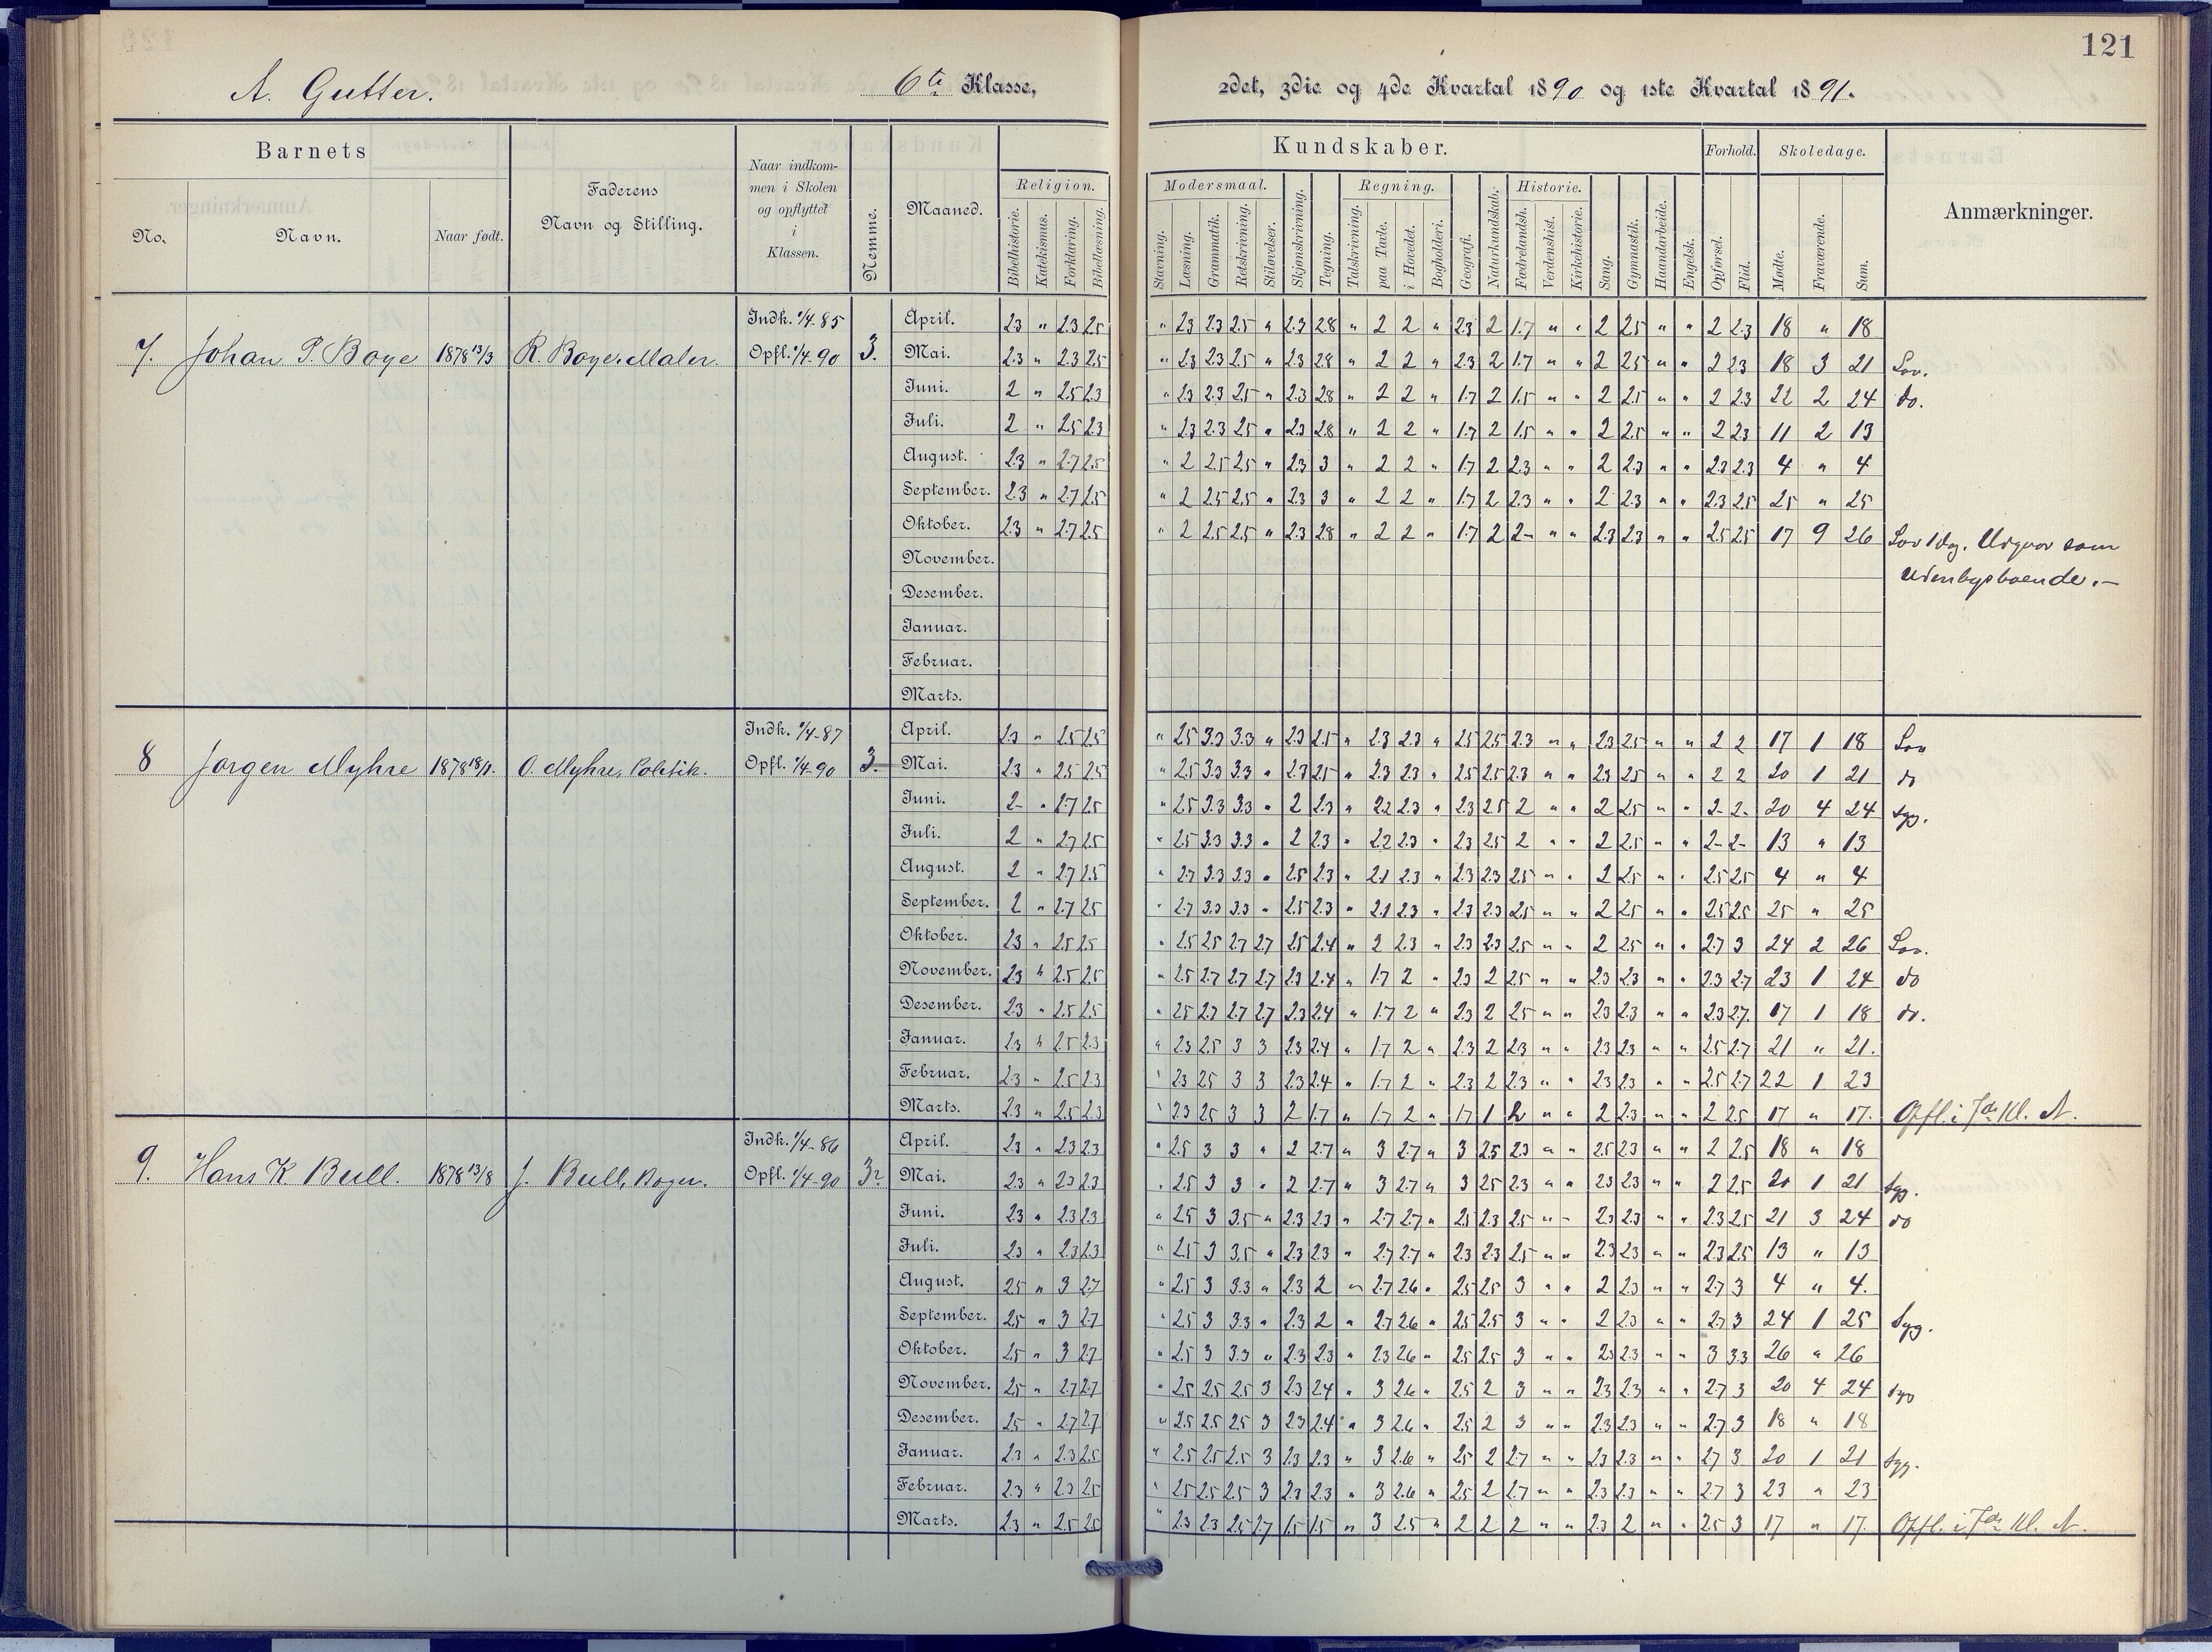 121
A. Gutter. 6te Klasse, 2det, 3die og 4de Kvartal 1890 og 1ste Kvartal 1891.
Barnets
No. Navn. Naar født.
Faderens
Navn og Stilling.
Naar indkom-
men i Skolen
og opflyttet
i
Klassen.
Nemme.
Maaned.
Kundskaber.
Religion.
Bibelhistorie. Katekismus. Forklaring. Bibellæsning.
Modersmaal.
Stavning. Læsning. Grammatik. Retskrivning. Stiløvelser.
Skjønskrivning. Tegning.
Regning.
Talskrivning. paa Tavle. i Hovedet. Bogholderi.
Geografi. Naturkundskab.
Historie.
Fædrelandsh. Verdenshist. Kirkehistorie.
Sang. Gymnastik. Haandarbeide. Engelsk.
Forhold.
Opførsel. Flid.
Skoledage.
Mødte. Fraværende. Sum.
Anmærkninger.
7. Johan P. Boye 1878 13/3 R. Boye, Maler. Indk. 1/4-85
Opfl. 1/4-90 3.
April. 2.3 " 2.3 2.5 " 2.3 2.3 2.5 " 2.3 2.8 " 2 2 " 2.3 2 1.7 " " 2 2.5 " " 2 2.3 18 " 18
Mai. 2.3 " 2.3 2.5 " 2.3 2.3 2.5 " 2.3 2.8 " 2 2 " 2.3 2 1.7 " " 2 2.5 " " 2 2.3 18 3 21 Lov.
Juni. 2 " 2.5 2.3 " 2.3 2.3 2.5 " 2.3 2.8 " 2 2 " 1.7 2 1.5 " " 2 2.5 " " 2 2.3 22 2 24 do.
Juli. 2 " 2.5 2.3 " 2.3 2.3 2.5 " 2.3 2.8 " 2 2 " 1.7 2 1.5 " " 2 2.5 " " 2 2.3 11 2 13
August. 2.3 " 2.7 2.5 " 2 2.5 2.5 " 2.3 3 " 2 2 " 1.7 2 2.3 " " 2 2.3 " " 2.3 2.3 4 " 4
September. 2.3 " 2.7 2.5 " 2 2.5 2.5 " 2.3 3 " 2 2 " 1.7 2 2.3 " " 2 2.3 " " 2.3 2.5 25 " 25
Oktober. 2.3 " 2.7 2.5 " 2 2.5 2.5 " 2.3 2.8 " 2 2 " 1.7 2 2- " " 2.3 2.3 " " 2.5 2.5 17 9 26 Lov 1 dag. Udgaar som
November. udenbysboende.-
Desember.
Januar.
Februar.
Marts.
8 Jørgen Myhre 1878 18/1. O. Myhre, Politik. Indk. 1/4-87
Opfl. 1/4-90 3.
April. 2.3 " 2.5 2.5 " 2.5 3.3 3.3 " 2.3 2.5 " 2.3 2.3 " 2.5 2.5 2.3 " " 2.3 2.5 " " 2 2 17 1 18 Lov
Mai. 2.3 " 2.5 2.5 " 2.5 3.3 3.3 " 2.3 2.5 " 2.3 2.3 " 2.5 2.5 2.3 " " 2.3 2.5 " " 2 2 20 1 21 do
Juni. 2- " 2.7 2.5 " 2.5 3.3 3.3 " 2 2.3 " 2.2 2.3 " 2.3 2.5 2 " " 2 2.5 " " 2- 2- 20 4 24 syg.
Juli. 2 " 2.7 2.5 " 2.5 3.3 3.3 " 2 2.3 " 2.2 2.3 " 2.3 2.5 2 " " 2 2.5 " " 2- 2- 13 " 13
August. 2 " 2.7 2.5 " 2.7 3.3 3.3 " 2.5 2.3 " 2.1 2.3 " 2.3 2.3 2.5 " " 2 2.5 " " 2.5 2.5 4 " 4
September. 2 " 2.7 2.5 " 2.7 3.3 3.3 " 2.5 2.3 " 2.1 2.3 " 2.3 2.3 2.5 " " 2 2.5 " " 2.5 2.5 25 " 25
Oktober. 2.3 " 2.5 2.5 " 2.5 2.5 2.7 2.7 2.5 2.4 " 2 2.3 " 2.3 2.3 2.5 " " 2 2.5 " " 2.7 3 24 2 26 Lov.
November. 2.3 " 2.5 2.5 " 2.5 2.7 2.7 2.7 2.3 2.4 " 1.7 2 " 2.3 2 2.5 " " 2.3 2.3 " " 2.3 2.7 23 1 24 do
Desember. 2.3 " 2.5 2.5 " 2.5 2.7 2.7 2.7 2.3 2.4 " 1.7 2 " 2.3 2 2.5 " " 2.3 2.3 " " 2.3 2.7 17 1 18 do.
Januar. 2.3 " 2.5 2.3 " 2.3 2.5 3 3 2.3 2.4 " 1.7 2 " 2.3 2 2.3 " " 2.3 2.3 " " 2.5 2.7 21 " 21.
Februar. 2.3 " 2.5 2.3 " 2.3 2.5 3 3 2.3 2.4 " 1.7 2 " 2.3 2 2.3 " " 2.3 2.3 " " 2.5 2.7 22 1 23
Marts. 2.3 " 2.5 2.3 " 2.3 2.5 3 3 2 1.7 " 1.7 2 " 1.7 1 2 " " 2 2.3 " " 2 2.5 17 " 17. Opfl. i 7de Kl. A.
9. Hans K. Bull. 1878 13/8 J. Bull, Bager. Indk. 1/4-86
Opfl. 1/4-90 3?
April. 2.3 " 2.3 2.3 " 2.5 3 3 " 2 2.7 " 3 2.7 " 3 2.5 2.3 " " 2.5 2.3 " " 2 2.5 18 " 18
Mai. 2.3 " 2.3 2.3 " 2.5 3 3 " 2 2.7 " 3 2.7 " 3 2.5 2.3 " " 2.3 2.3 " " 2 2.5 20 1 21 syg.
Juni. 2.3 " 2.3 2.3 " 2.5 3 3.5 " 2.3 2.3 " 2.7 2.7 " 2.5 2.3 2.5 " " 2.3 2.3 " " 2.3 2.5 21 3 24 do
Juli. 2.3 " 2.3 2.3 " 2.5 3 3.5 " 2.3 2.3 " 2.7 2.7 " 2.3 2.3 2.5 " " 2.3 2.3 " " 2.3 2.5 13 " 13
August. 2.5 " 3 2.7 " 2.5 3 3.3 " 2.3 2 " 2.7 2.6 " 2.5 2.5 3 " " 2 2.3 " " 2.7 3 4 " 4.
September. 2.5 " 3 2.7 " 2.5 3 3.3 " 2.3 2 " 2.7 2.6 " 2.5 2.5 3 " " 2 2.3 " " 2.7 3 24 1 25 Syg.
Oktober. 2.5 " 3 2.7 " 2.5 3 3.3 " 2.3 2.3 " 2.3 2.6 " 2.5 2.5 3 " " 2.3 2.3 " " 3 3.3 26 " 26
November. 2.5 " 2.7 2.7 " 2.5 2.5 2.5 3 2.3 2.4 " 3 2.6 " 2.5 2 3 " " 2.3 2.3 " " 2.7 3 20 4 24 syg
Desember. 2.5 " 2.7 2.7 " 2.5 2.5 2.5 3 2.3 2.4 " 3 2.6 " 2.5 2 3 " " 2.3 2.3 " " 2.7 3 18 " 18
Januar. 2.3 " 2.3 2.5 " 2.5 2.5 2.5 3 2.3 2.3 " 3 2.6 " 2.5 2 2.7 " " 2.3 2.3 " " 2.7 3 20 1 21 syg.
Februar. 2.3 " 2.3 2.5 " 2.5 2.5 2.5 3 2.3 2.3 " 3 2.6 " 2.5 2 2.7 " " 2.3 2.3 " " 2.7 3 23 " 23
Marts. 2.3 " 2.5 2.5 " 2.3 2.3 2.5 2.7 1.5 1.5 " 3 2.5 " 2 2 2 " " 2.3 2 " " 2.5 3 17 " 17. Opfl. i 7de Kl. A.